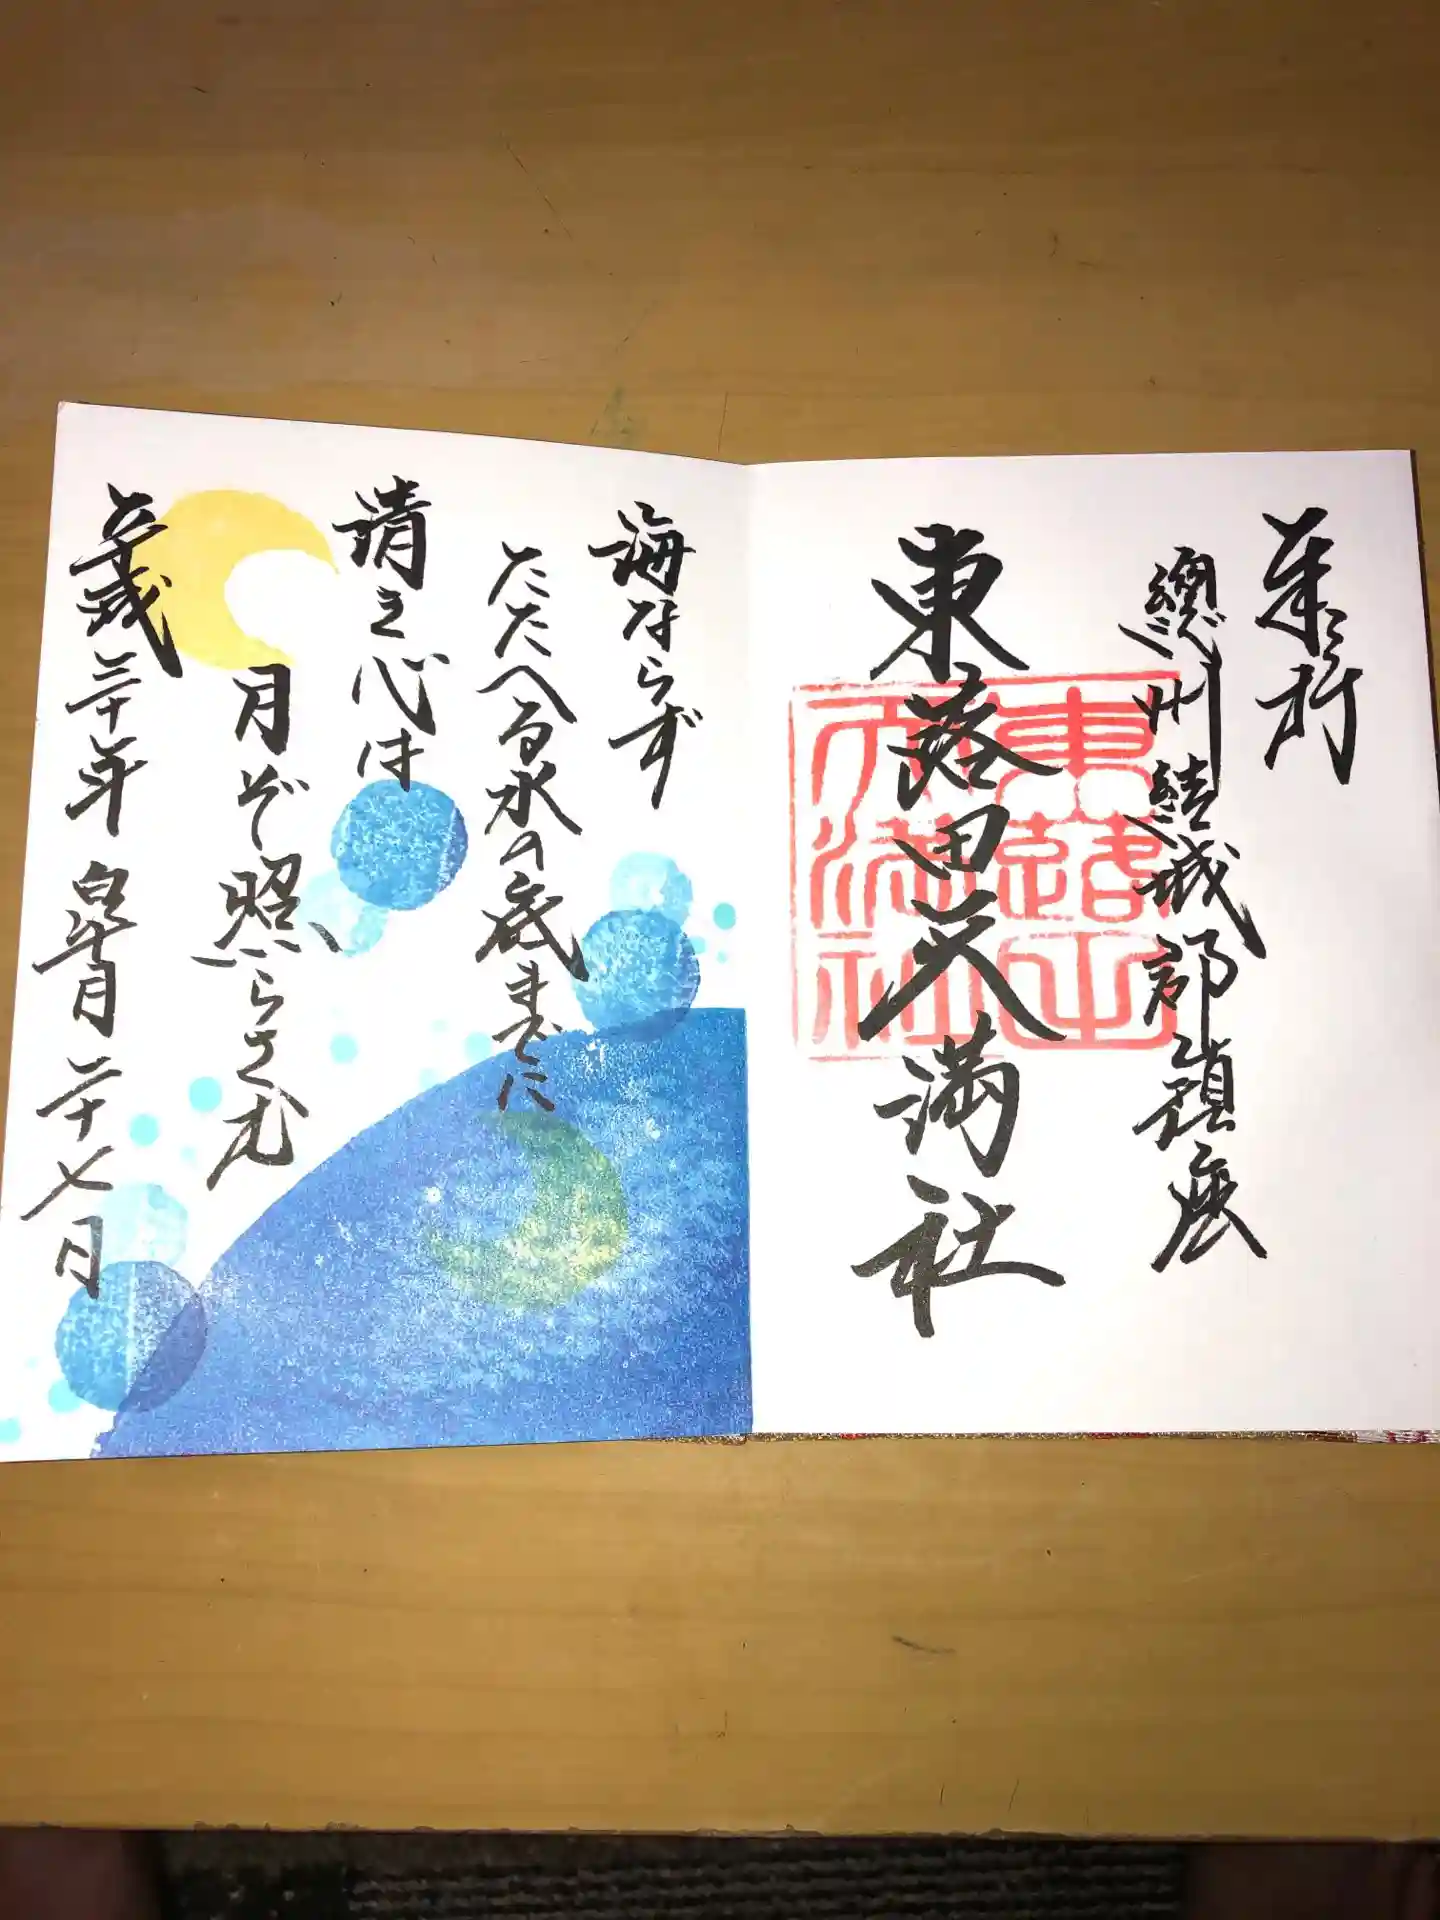 奉拝
總州結城郡鎮座
東蕗田天満社
東蕗田
天満社
海ならず
たたへる水の底までに
清き心は
月ぞ照らさむ
平成三十年皐月二十七日